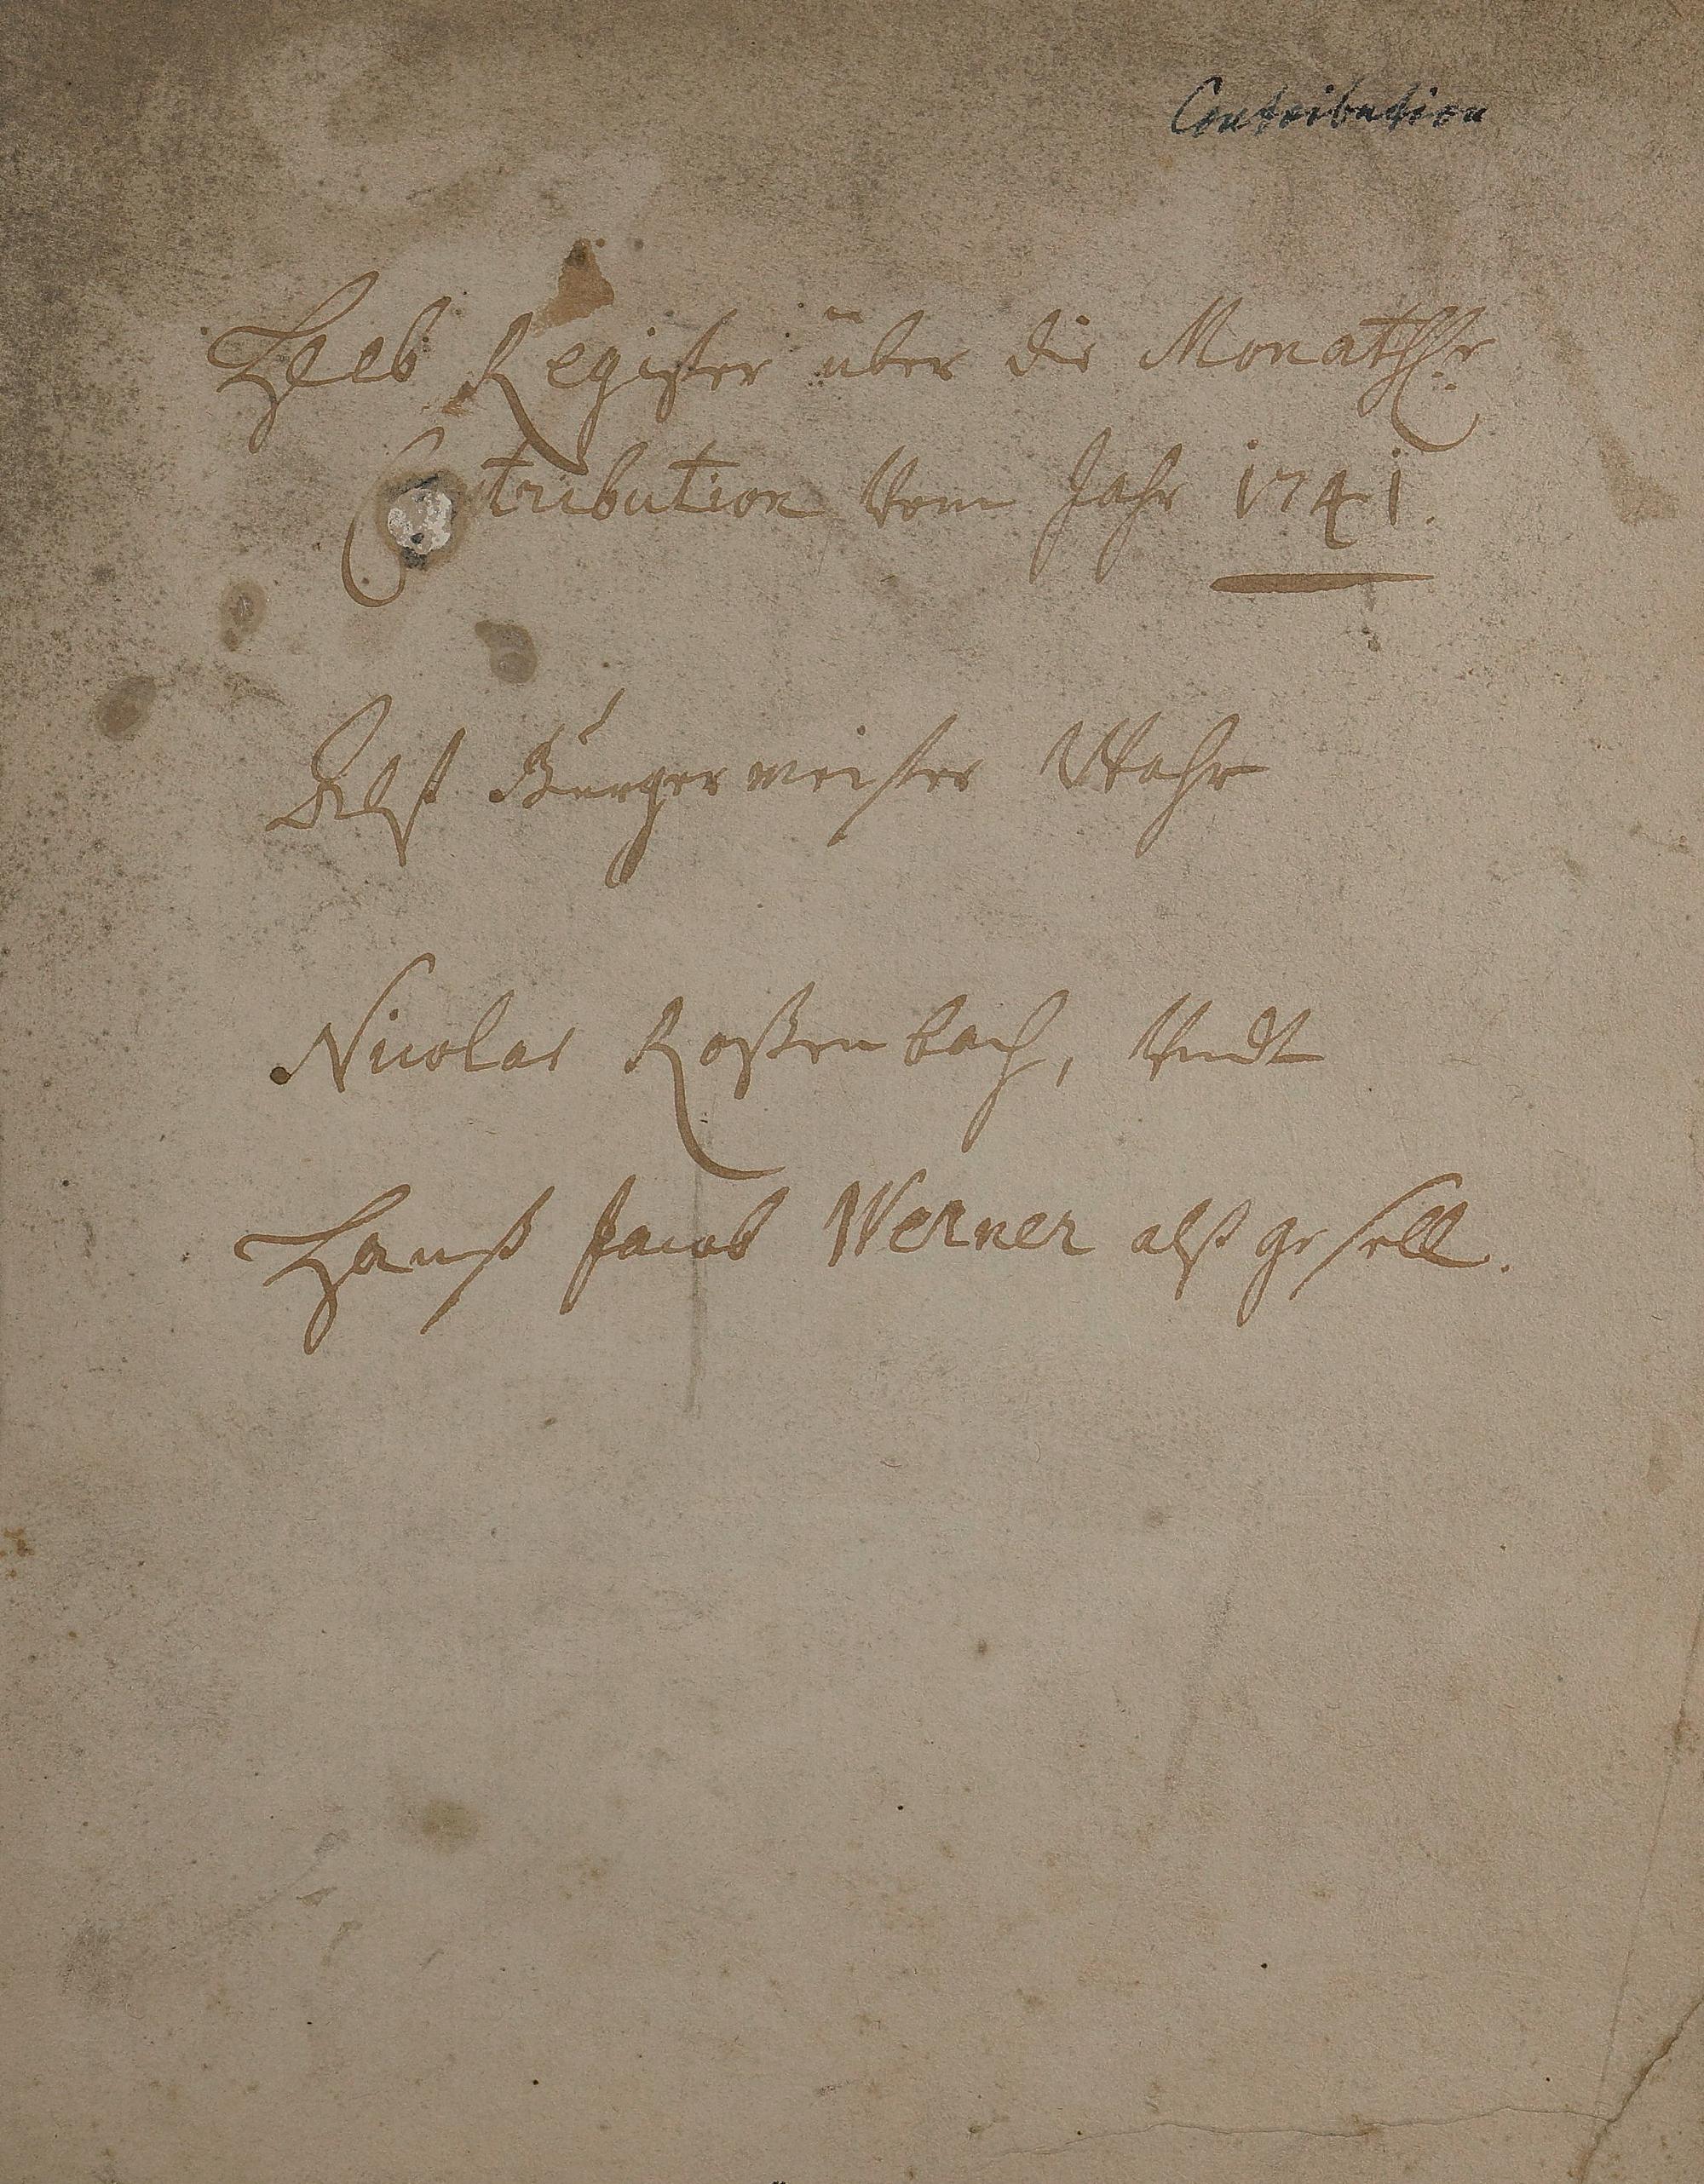 Contribution
Heb Register über die Monathl:
Contribution Vom Jahr 1741.
Alß Bürgermeister Wahr
Nicolas Roßenbach, Undt
Hanß Jacob Werner alß gesell.